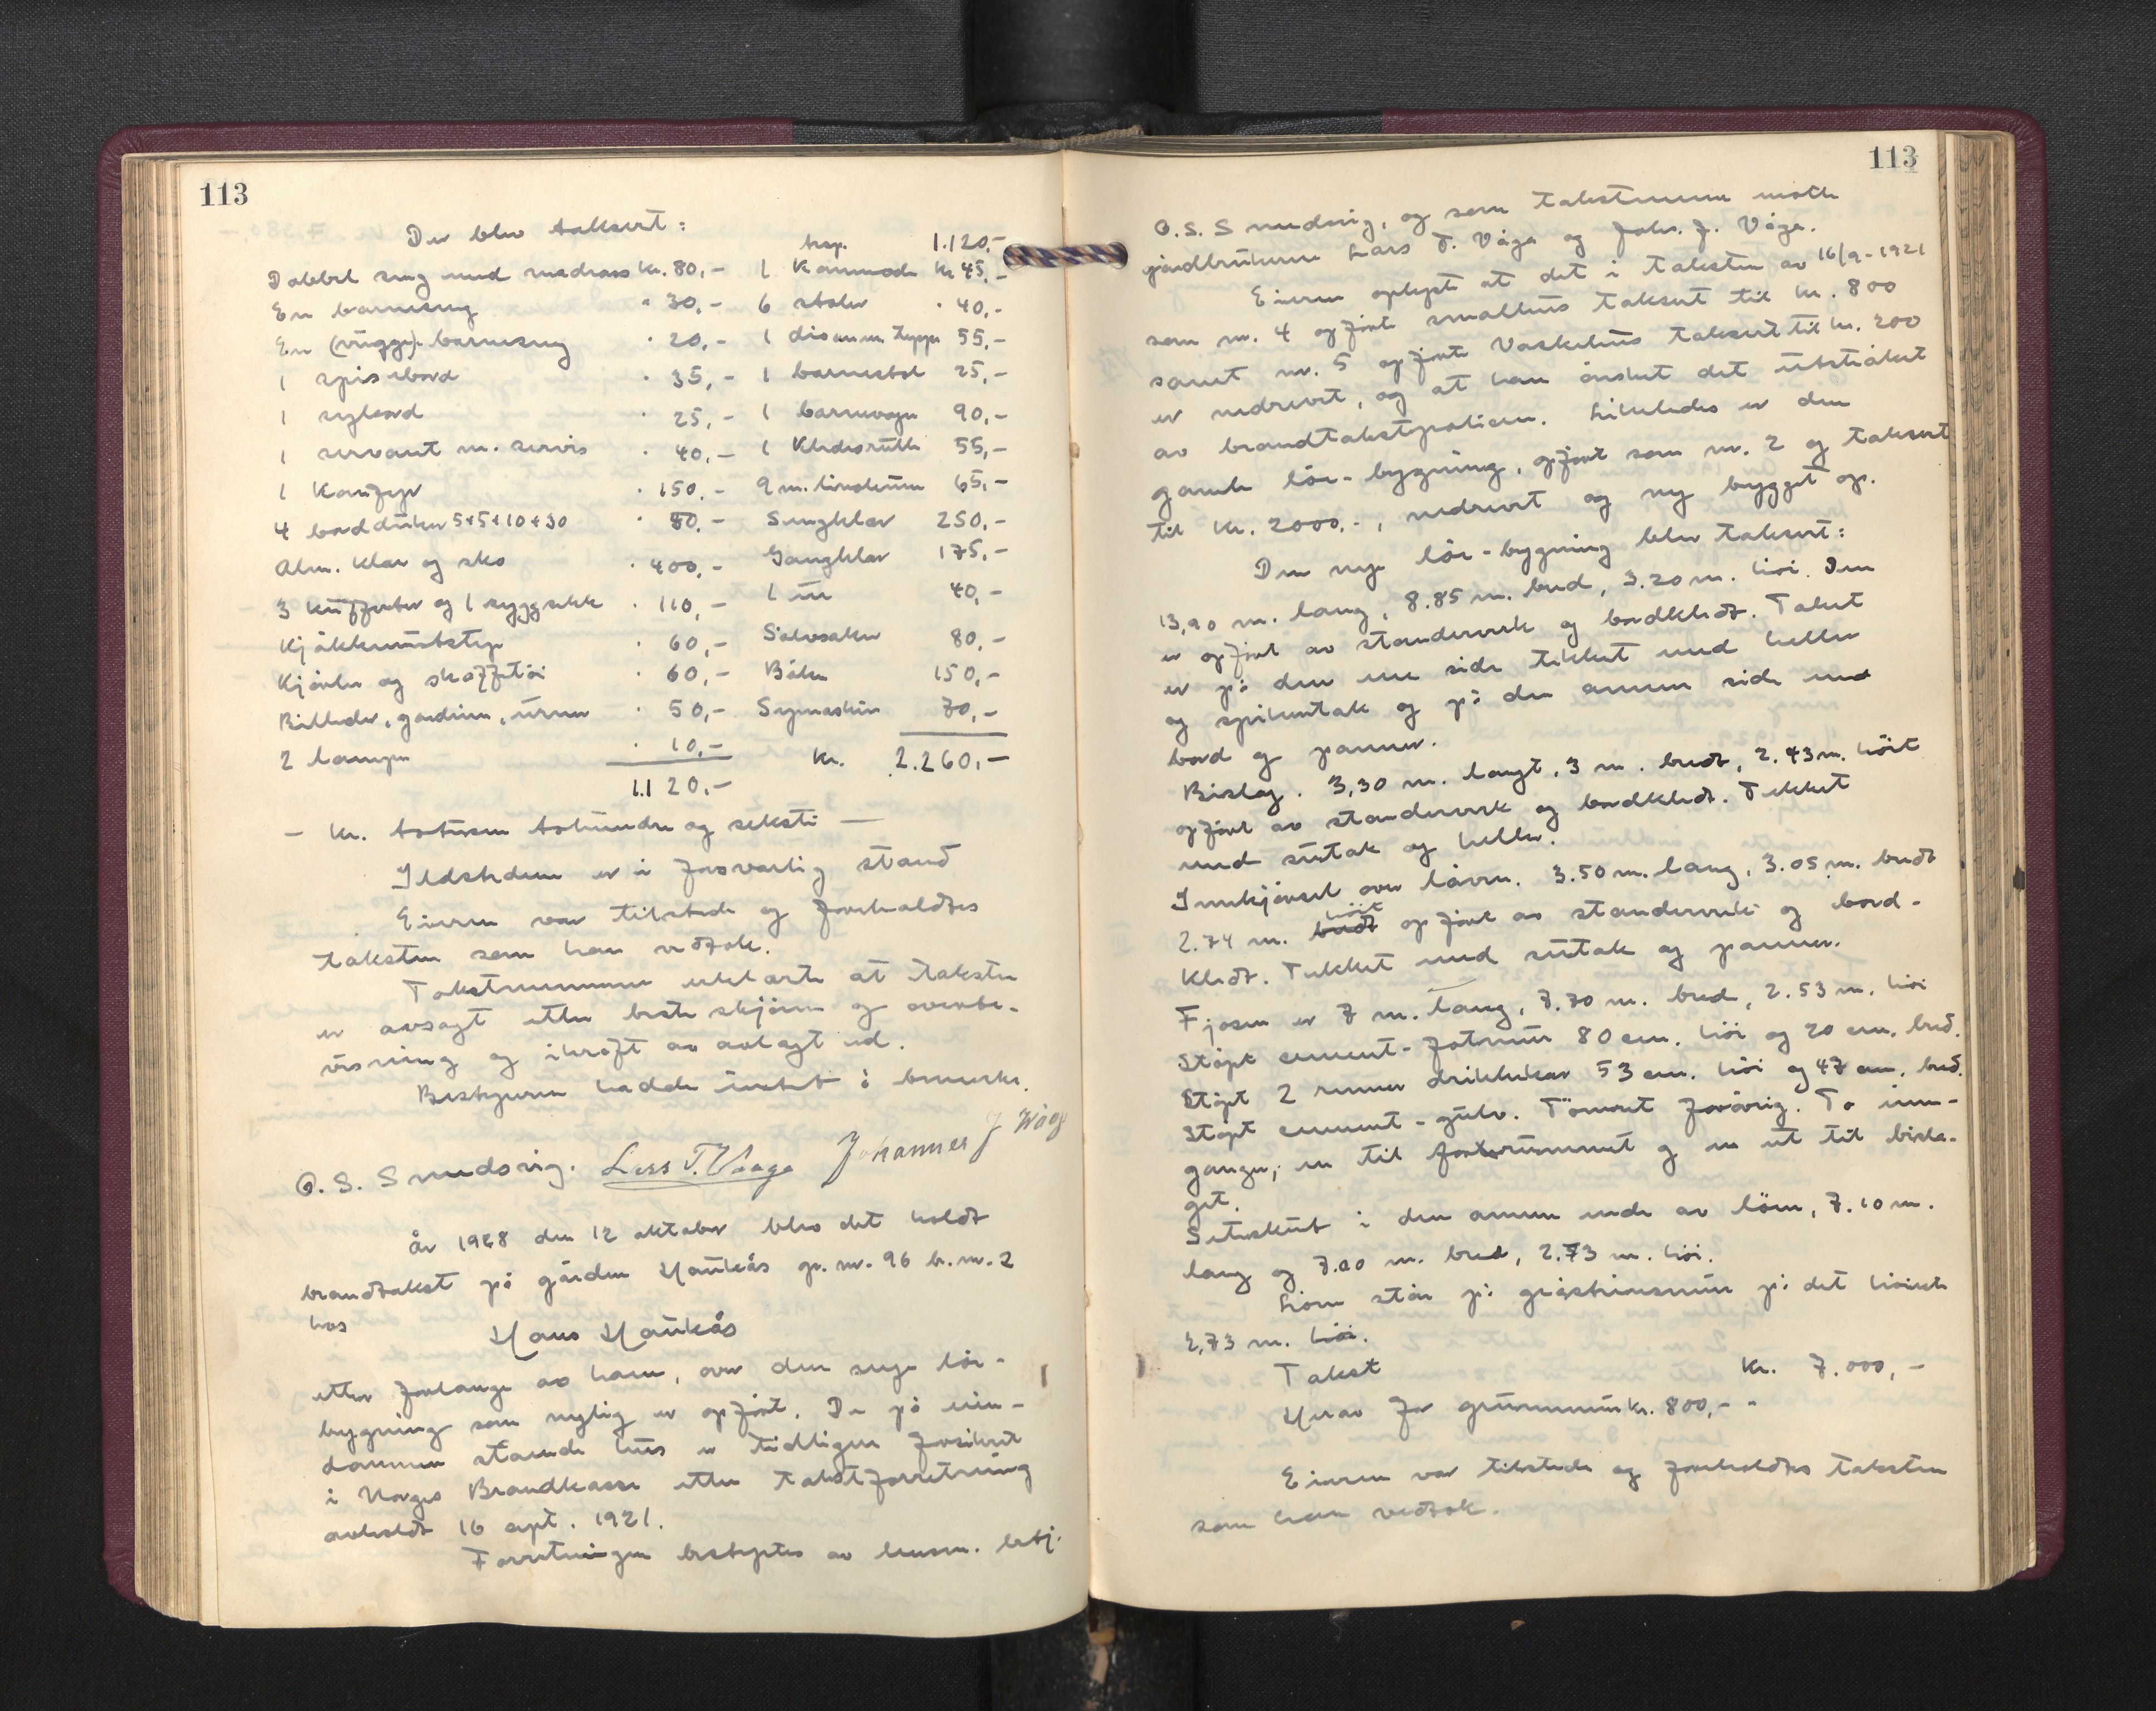 113
Der blev taksert:
Dobbel seng med madrass kr. 80,-
En barneseng " 30,-
En (vugge) barneseng " 20,-
1 spisebord " 35,-
1 sybord " 25,-
1 servant m. servis " 40,-
1 Komfyr " 150,-
4 bordduker 5+5+10+30 " 50,-
Alm. klær og sko " 400,-
3 kufferter og 1 ryggsekk " 110,-
Kjøkkenutstyr " 60,-
Kjørler og skaffetøi " 60,-
Billeder, gardiner, urner " 50,-
2 lamper " 10,-
1.120,-
trsp. 1.120,-
1 Kommode kr 45,-
6 stoler " 40,-
1 divanteppe 55,-
1 barnestol 25,-
1 barnevogn 90,-
1 Klædesrulle 55,-
9 m. linoleum 65,-
Sengklær 250,-
Gangklær 175,-
1 ur 40,-
Sølvsaker 80,-
Bøker 150,-
Symaskin 70,-
Kr. 2.260,-
- kr. totusen tohundre og seksti -
Ildstedene er i forsvarlig stand
Eieren var tilstede og foreholdtes
taksten som han vedtok.
Takstmennene erklærte at taksten
er avsagt etter beste skjønn og overbe-
visning og ikraft av avlagt ed.
Bestyreren hadde intet å bemerke.
O. S. Smedsvig. Lars T. Vaage Johannes J Våge
År 1928 den 12 oktober blev det holdt
brandtakst på gården Haukås gr. nr. 96 b. nr. 2
hos
Hans Haukås
etter forlange av ham, over den nye løe-
bygning som nylig er opført. De på eien-
dommen stående hus er tidligere forsikret
i Norges Brandkasse etter takstforretning
avholdt 16 sept. 1921.
Forretningen bestyrtes av lensm. betj.
113
O. S. Smedsvig, og som takstmenn møtte
gårdbrukerne Lars T. Våge og Johs. J. Våge.
Eieren oplyste at det i taksten av 16/9-1921
som nr. 4 opførte smalhus taksert til kr. 800
samt nr. 5 opførte Vaskehus taksert til kr. 200
er nedrevet, og at han ønsket det utstrøket
av brandtakstpolicen. Likeledes er den
gamle løe-bygning, opført som nr. 2 og taksert
til kr. 2000,-, nedrevet og ny bygget op.
Den nye løe-bygning blev taksert:
13,90 m. lang, 8.85 m. bred, 3.20 m. høi. Den
er opført av standerverk og bordkledt. Taket
er på den ene side tekket med heller
og spikertak og på den annen side med
bord og panner.
Bislag. 3,30 m. langt, 3 m. bredt, 2.43 m. høit
opført av standerverk og bordkledt. Tekket
med sutak og heller.
Innkjørsel over låven. 3.50 m. lang, 3.05 m. bredt
2.74 m. bredt høit opført av standerverk og bord-
kledt. Tekket med sutak og panner.
Fjøsen er 7 m. lang, 7.70 m. bred, 2.53 m. høi
Støpt cement-fotmur 80 cm. høi og 20 cm. bred.
Støpt 2 renner drikkekar 53 cm. høi og 47 cm. bred.
Støpt cement-gulv. Tømret forøvrig. To inn-
ganger, en til forrummet og en ut til bisla-
get.
Seterskut i den annen ende av løen, 7.10 m.
lang og 7.00 m. bred, 2.73 m. høi.
Løen står på gråstensmur på det høieste
2,73 m. høi.
Takst Kr. 7.000,-
Herav for grunnmur kr. 800,- -
Eieren var tilstede og foreholdtes taksten
som han vedtok.